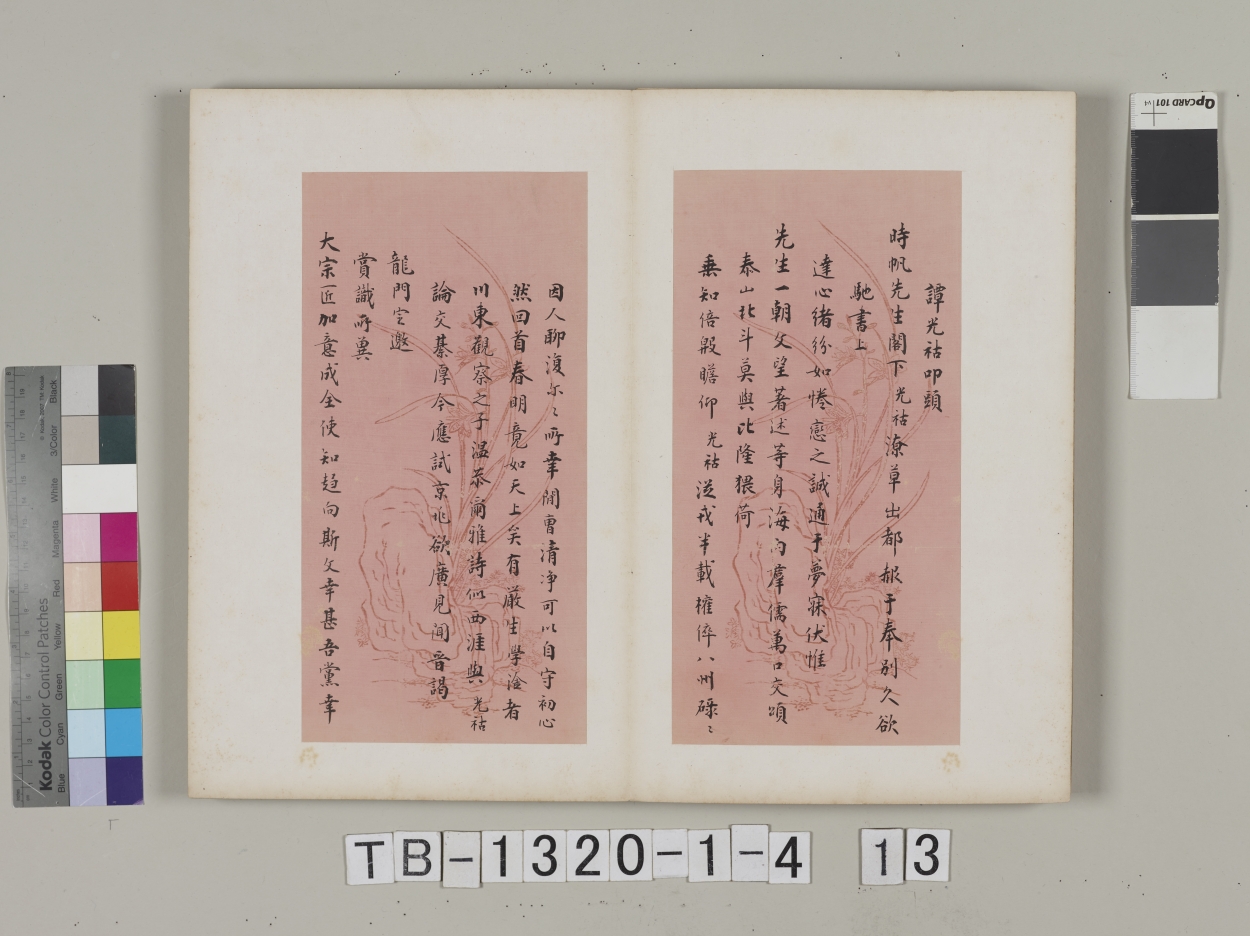 譚光祜叩頭
時帆先生閣下光祜潦草出都艱于奉別久欲
馳書上
達心緒紛如惓戀之誠通于夢寐伏惟
先生一朝文望著述等身海內羣儒萬口交頌
泰山北斗莫與比隆猥荷
垂知倍殷瞻仰光祜從戎半載權倅八州碌〻
因人聊復尔〻所幸閒曹清淨可以自守初心
然回首春明竟如天上矣有嚴生學淦者
川東觀察之子溫恭爾雅詩似西涯與光祜
論交綦厚今應試京兆欲廣見聞晉謁
龍門定邀
賞識所冀
大宗匠加意成全使知趨向斯文幸甚吾黨幸
TB-1320-1-4 13
QPCARD 101 v4
Kodak Color Control Patches
Blue Cyan Green Yellow Red Magenta White 3/Color Black